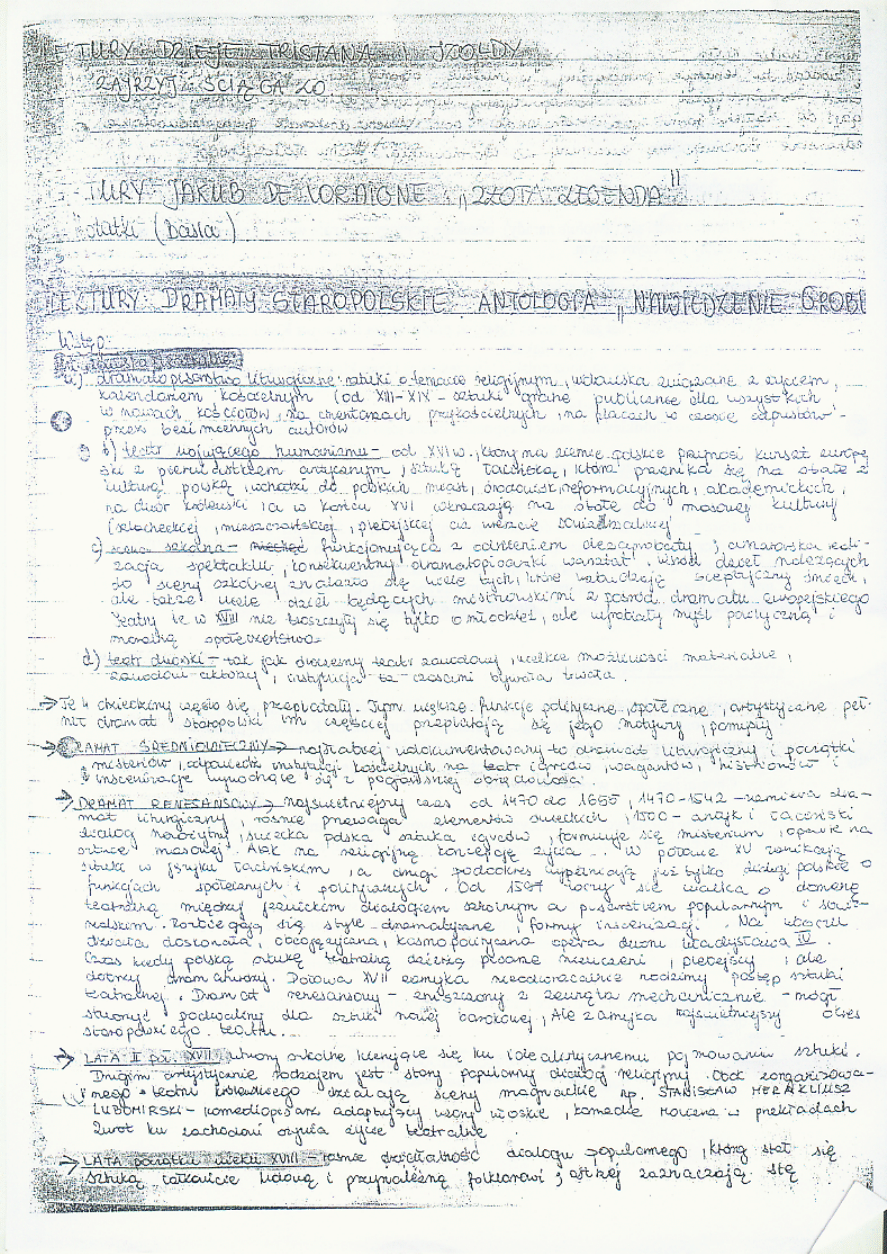 LEKTURY: DZIEJE TRISTANA I IZOLDY
ZAJRZYJ: ŚCIĄGA ZO
TURY JAKUB DE VORAIGNE „ZŁOTA LEGENDA"
(Dasia)
LEKTURY: DRAMATY STAROPOLSKIE. ANTOLOGIA „NAWIEDZENIE GROBU
Wstęp:
a) dramatopisarstwo liturgiczne: sztuki o temacie religijnym, widowiska związane z życiem,
kalendarzem kościelnym (od XIII-XIX - sztuki grane publicznie dla wszystkich
w nawach kościołów, na cmentarzach przykościelnych, na placach w czasie odpustów -
przez bezimiennych autorów
b) teatr wojującego humanizmu - od XVI w., który na ziemie polskie przynosi kunszt europej
ski z pierwiastkiem antycznym, sztukę łacińską, która przenika się na stałe z
kulturą polską, wchodzi do polskich miast, środowisk reformacyjnych, akademickich,
na dwór królewski a w końcu XVI wkraczają na stałe do masowej kultury
szlacheckiej, mieszczańskiej, plebejskiej
c) scena szkolna - funkcjonująca z odcieniem dezaprobaty, amatorska reali-
zacja spektaklu, konsekwentny dramatopisarski warsztat. Wśród dzieł należących
do sceny szkolnej znalazło się wiele tych, które wzbudzają sceptyczny śmiech,
ale także wiele dzieł będących mistrzowskimi z pośród dramatu europejskiego
Teatry te w XVIII nie troszczyły się tylko o młodzież, ale wpływały myśl polityczną i
moralną społeczeństwa.
d) teatr dworski - tak jak dzisiejszy teatr zawodowy, wielkie możliwości materialne,
zawodowi aktorzy, instytucja ta czasami bywała trwała.
→ Te 4 dziedziny często się przeplatały. Tym większe funkcje polityczne, społeczne, artystyczne peł-
nił dramat staropolski im częściej przeplatają się jego motywy, pomysły
→ DRAMAT ŚREDNIOWIECZNY → najsłabiej udokumentowany - to dramat liturgiczny i początki
misteriów, odpowiedzi instytucji kościelnych na teatr igrców, wagantów, histrionów i
inscenizacje wywodzące się z pogańskiej obrzędowości.
→ DRAMAT RENESANSOWY → najświetniejszy czas od 1470 do 1655, 1470-1542 - zamiera dra-
mat liturgiczny, rośnie przewaga elementów świeckich, 1500 - antyk i łaciński
dialog, świecka polska sztuka igrców, formuje się misterium, oparte na
sztuce masowej. Atak na religijną koncepcję życia. W połowie XV zanikają
sztuki w języku łacińskim, a drugi podokres wypełniają już tylko dialogi polskie o
funkcjach społecznych i politycznych. Od 1587 toczy się walka o domenę
teatralną między jezuickim dialogiem szkolnym a pisarstwem popularnym i sowi-
zdrzalskim. Rozbiegają się style dramatyczne, formy inscenizacji. Na uboczu
działa doskonała, obcojęzyczna, kosmopolityczna opera dworu Władysława IV.
Czas kiedy polską sztukę teatralną dzierżą pisarze nieuczeni, plebejscy, ale
dobrzy dramaturdzy. Połowa XVII zamyka nieodwracalnie rodzimy postęp sztuki
teatralnej. Dramat renesansowy - zniszczony z zewnątrz mechanicznie - mógł
stworzyć podwaliny dla sztuki nowej barokowej. Ale zamyka najświetniejszy okres
staropolskiego teatru.
→ LATA II poł. XVII utwory szkolne kierujące się ku idealistycznemu pojmowaniu sztuki.
Drugim artystycznie rodzajem jest stary popularny dialog religijny. Obok zorganizowa-
nego teatru królewskiego działają sceny magnackie np. STANISŁAW HERAKLIUSZ
LUBOMIRSKI - komediopisarz adaptujący wzory włoskie, komedie Moliera w przekładach
Zwrot ku zachodowi ożywia życie teatralne.
→ LATA początku wieku XVIII - rośnie działalność dialogu popularnego, który stał się
sztuką całkowicie ludową i przynależną folklorowi, ostrzej zaznaczają się